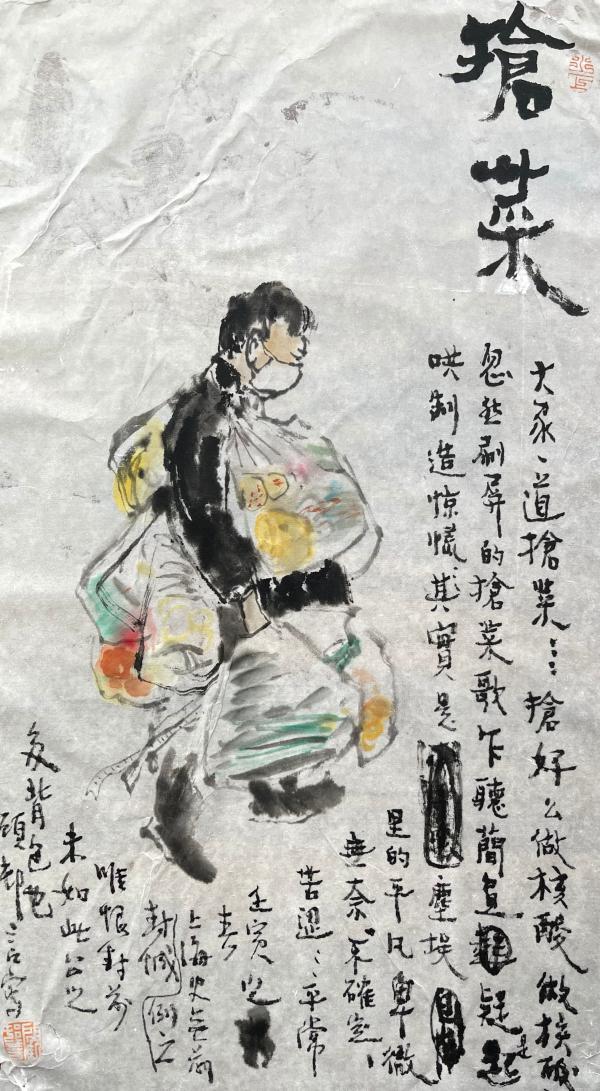 搶菜
大家、道搶菜…搶好么做核酸做核酸
忽然刷屏的搶菜歌乍聽簡直疑是起
哄制造惊慌其實是塵埃
里的平凡卑微
無奈、不確定、
苦澀、平常
壬寅
春
上海史無前
封城
唯恨封前
未如此公之
背包